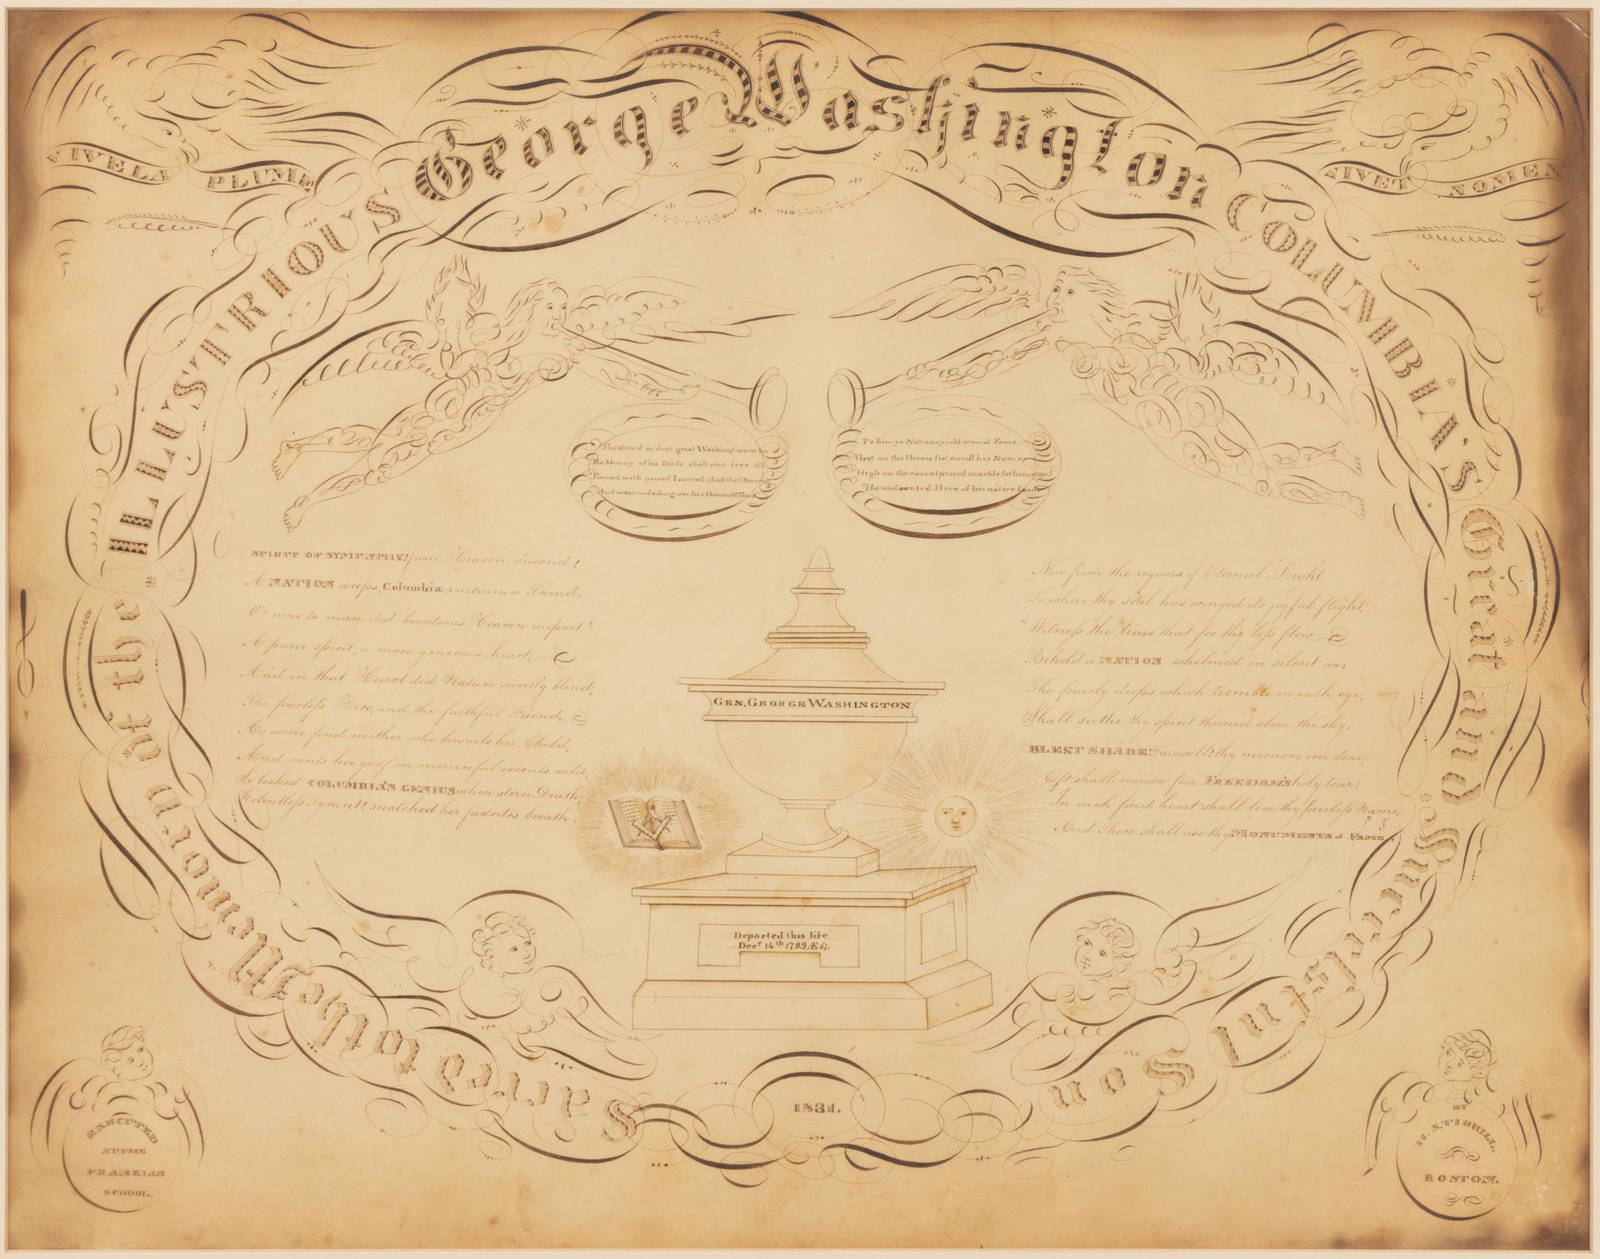 VIVE LA PLUME
VIVET NOMEN
Sacred to the Memory of the ILLUSTRIOUS George Washington COLUMBIA'S Great and Successful Son
Tho stow'd in dust great Washington
The Memory of his Deeds shall ever live
with proud Laurel shall the Olive
And wave unfading o'er his Honour'd
To him ye Nations yield eternal Fame
First on the Heroic list enroll his Name
High on the sculptured marble let him stand
The undaunted Hero of his native Land
SPIRIT OF SYMPATHY! from Heaven descend!
A NATION weeps, Columbia mourns a Friend.
Or never to man did bounteous Heaven impart
A purer spirit, a more generous heart;
And in that Heart did Nature sweetly blend,
The fearless Hero, and the faithful Friend,
As some fond mother who bewails her Child,
And vents her grief in mournful accents wild,
So looked COLUMBIA'S GENIUS when stern Death,
Relentless Tyrant! snatched her favorite's breath.
Now from the regions of Eternal Light,
To where thy soul has winged its joyful flight,
Witness the tears that for this loss flow,
Behold a NATION whelmed in silent woe;
The pearly drops which tremble in each eye,
Shall soothe thy spirit throned above the sky.
BLEST SHADE! Farewell! thy memory ever dear,
Oft shall receive fair FREEDOM'S holy tear;
In each fond heart shall live thy fearless Name,
And There shall rise thy MONUMENTS of FAME
GEN. GEORGE WASHINGTON
Departed this life
Decr 14th 1799 Æ 67.
1831.
EXECUTED
AT THE
FRANKLIN
SCHOOL.
BY
H. N. TIRRILL.
BOSTON.